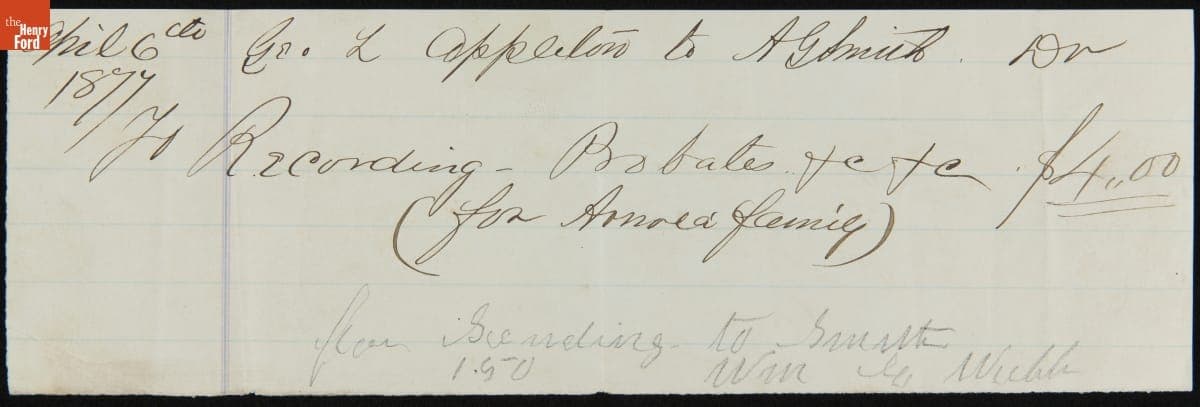 the Henry Ford
April 6th Geo L Appleton to A G Smith. Dr
1877
To Recording - Probates &c &c. $4.00
(for Arnold family)
for Sending to Smith
1.50 Wm Webb